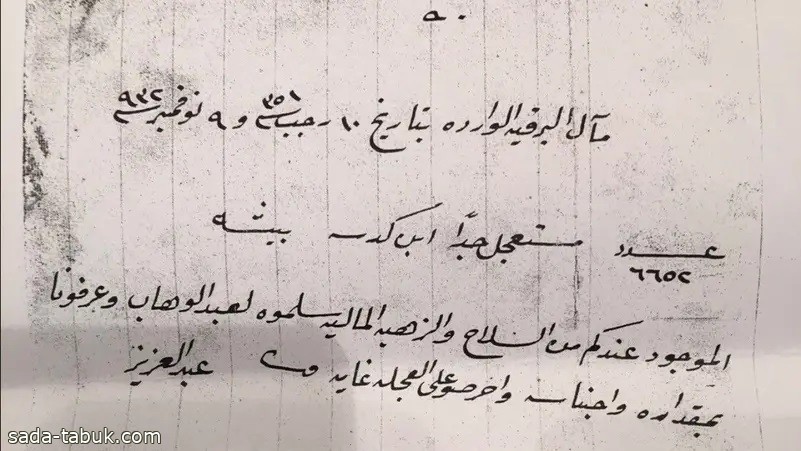 ٩٠
مآل البرقيه الوارده بتاريخ ١٠ رجب ٣٥١ و ٩ نوفمبر ٩٣٢
عدد ٦٦٥٢ مستعجل جداً ابن كدسه بيشه
الموجود عندكم من السلاح والزهبه الماليه سلموه لعبدالوهاب وعرفونا
بمقداره واجناسه واحرصوا على العجله غايه عبدالعزيز
sada-tabuk.com